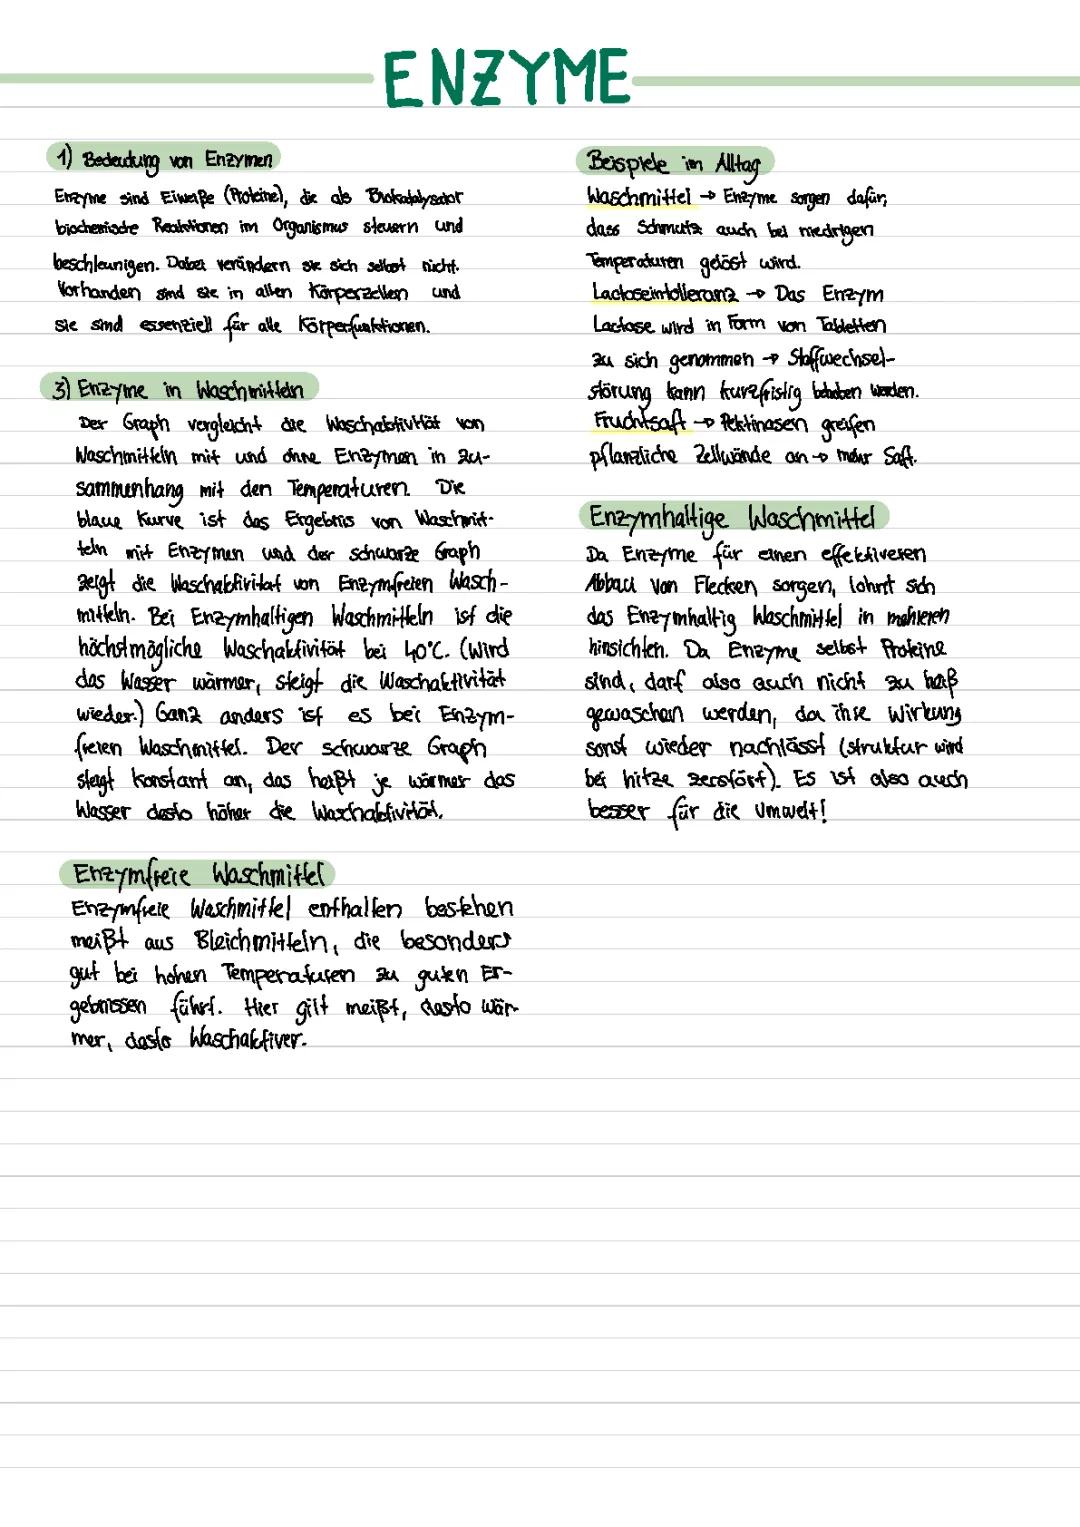 ENZYME
1) Bedeutung von Enzymen
Enzyme sind Eiweiße (Proteine), die als Biokatalysator
biochemische Reaktionen im Organismus steuern und
beschleunigen. Dabei verändern sie sich selbst nicht.
Vorhanden sind sie in allen Körperzellen und
sie sind essenziell für alle Körperfunktionen.
3) Enzyme in Waschmitteln
Der Graph vergleicht die Waschaktivität von
Waschmitteln mit und ohne Enzymen in Zu-
sammenhang mit den Temperaturen. Die
blaue Kurve ist das Ergebnis von Waschmit-
teln mit Enzymen und der schwarze Graph
zeigt die Waschaktivität von Enzymfreien Wasch-
mitteln. Bei Enzymhaltigen Waschmitteln ist die
höchstmögliche Waschaktivität bei 40°C. (Wird
das Wasser wärmer, steigt die Waschaktivität
wieder.) Ganz anders ist es bei Enzym-
freien Waschmittel. Der schwarze Graph
steigt konstant an, das heißt je wärmer das
Wasser desto höher die Waschaktivität.
Enzymfreie Waschmittel
Enzymfreie Waschmittel enthalten bestehen
meißt aus Bleichmitteln, die besonders
gut bei hohen Temperaturen zu guten Er-
gebnissen führt. Hier gilt meißt, desto wär-
mer, desto Waschaktiver.
Beispiele im Alltag
Waschmittel → Enzyme sorgen dafür,
dass Schmutz auch bei niedrigen
Temperaturen gelöst wird.
Lactoseintolleranz → Das Enzym
Lactase wird in Form von Tabletten
zu sich genommen → Stoffwechsel-
störung kann kurzfristig behoben werden.
Fruchtsaft → Pektinasen greifen
pflanzliche Zellwände an → mehr Saft.
Enzymhaltige Waschmittel
Da Enzyme für einen effektiveren
Abbau von Flecken sorgen, lohnt sich
das Enzymhaltig Waschmittel in mehreren
hinsichten. Da Enzyme selbst Proteine
sind, darf also auch nicht zu heiß
gewaschen werden, da ihre Wirkung
sonst wieder nachlässt (struktur wird
bei hitze zerstört). Es ist also auch
besser für die Umwelt!